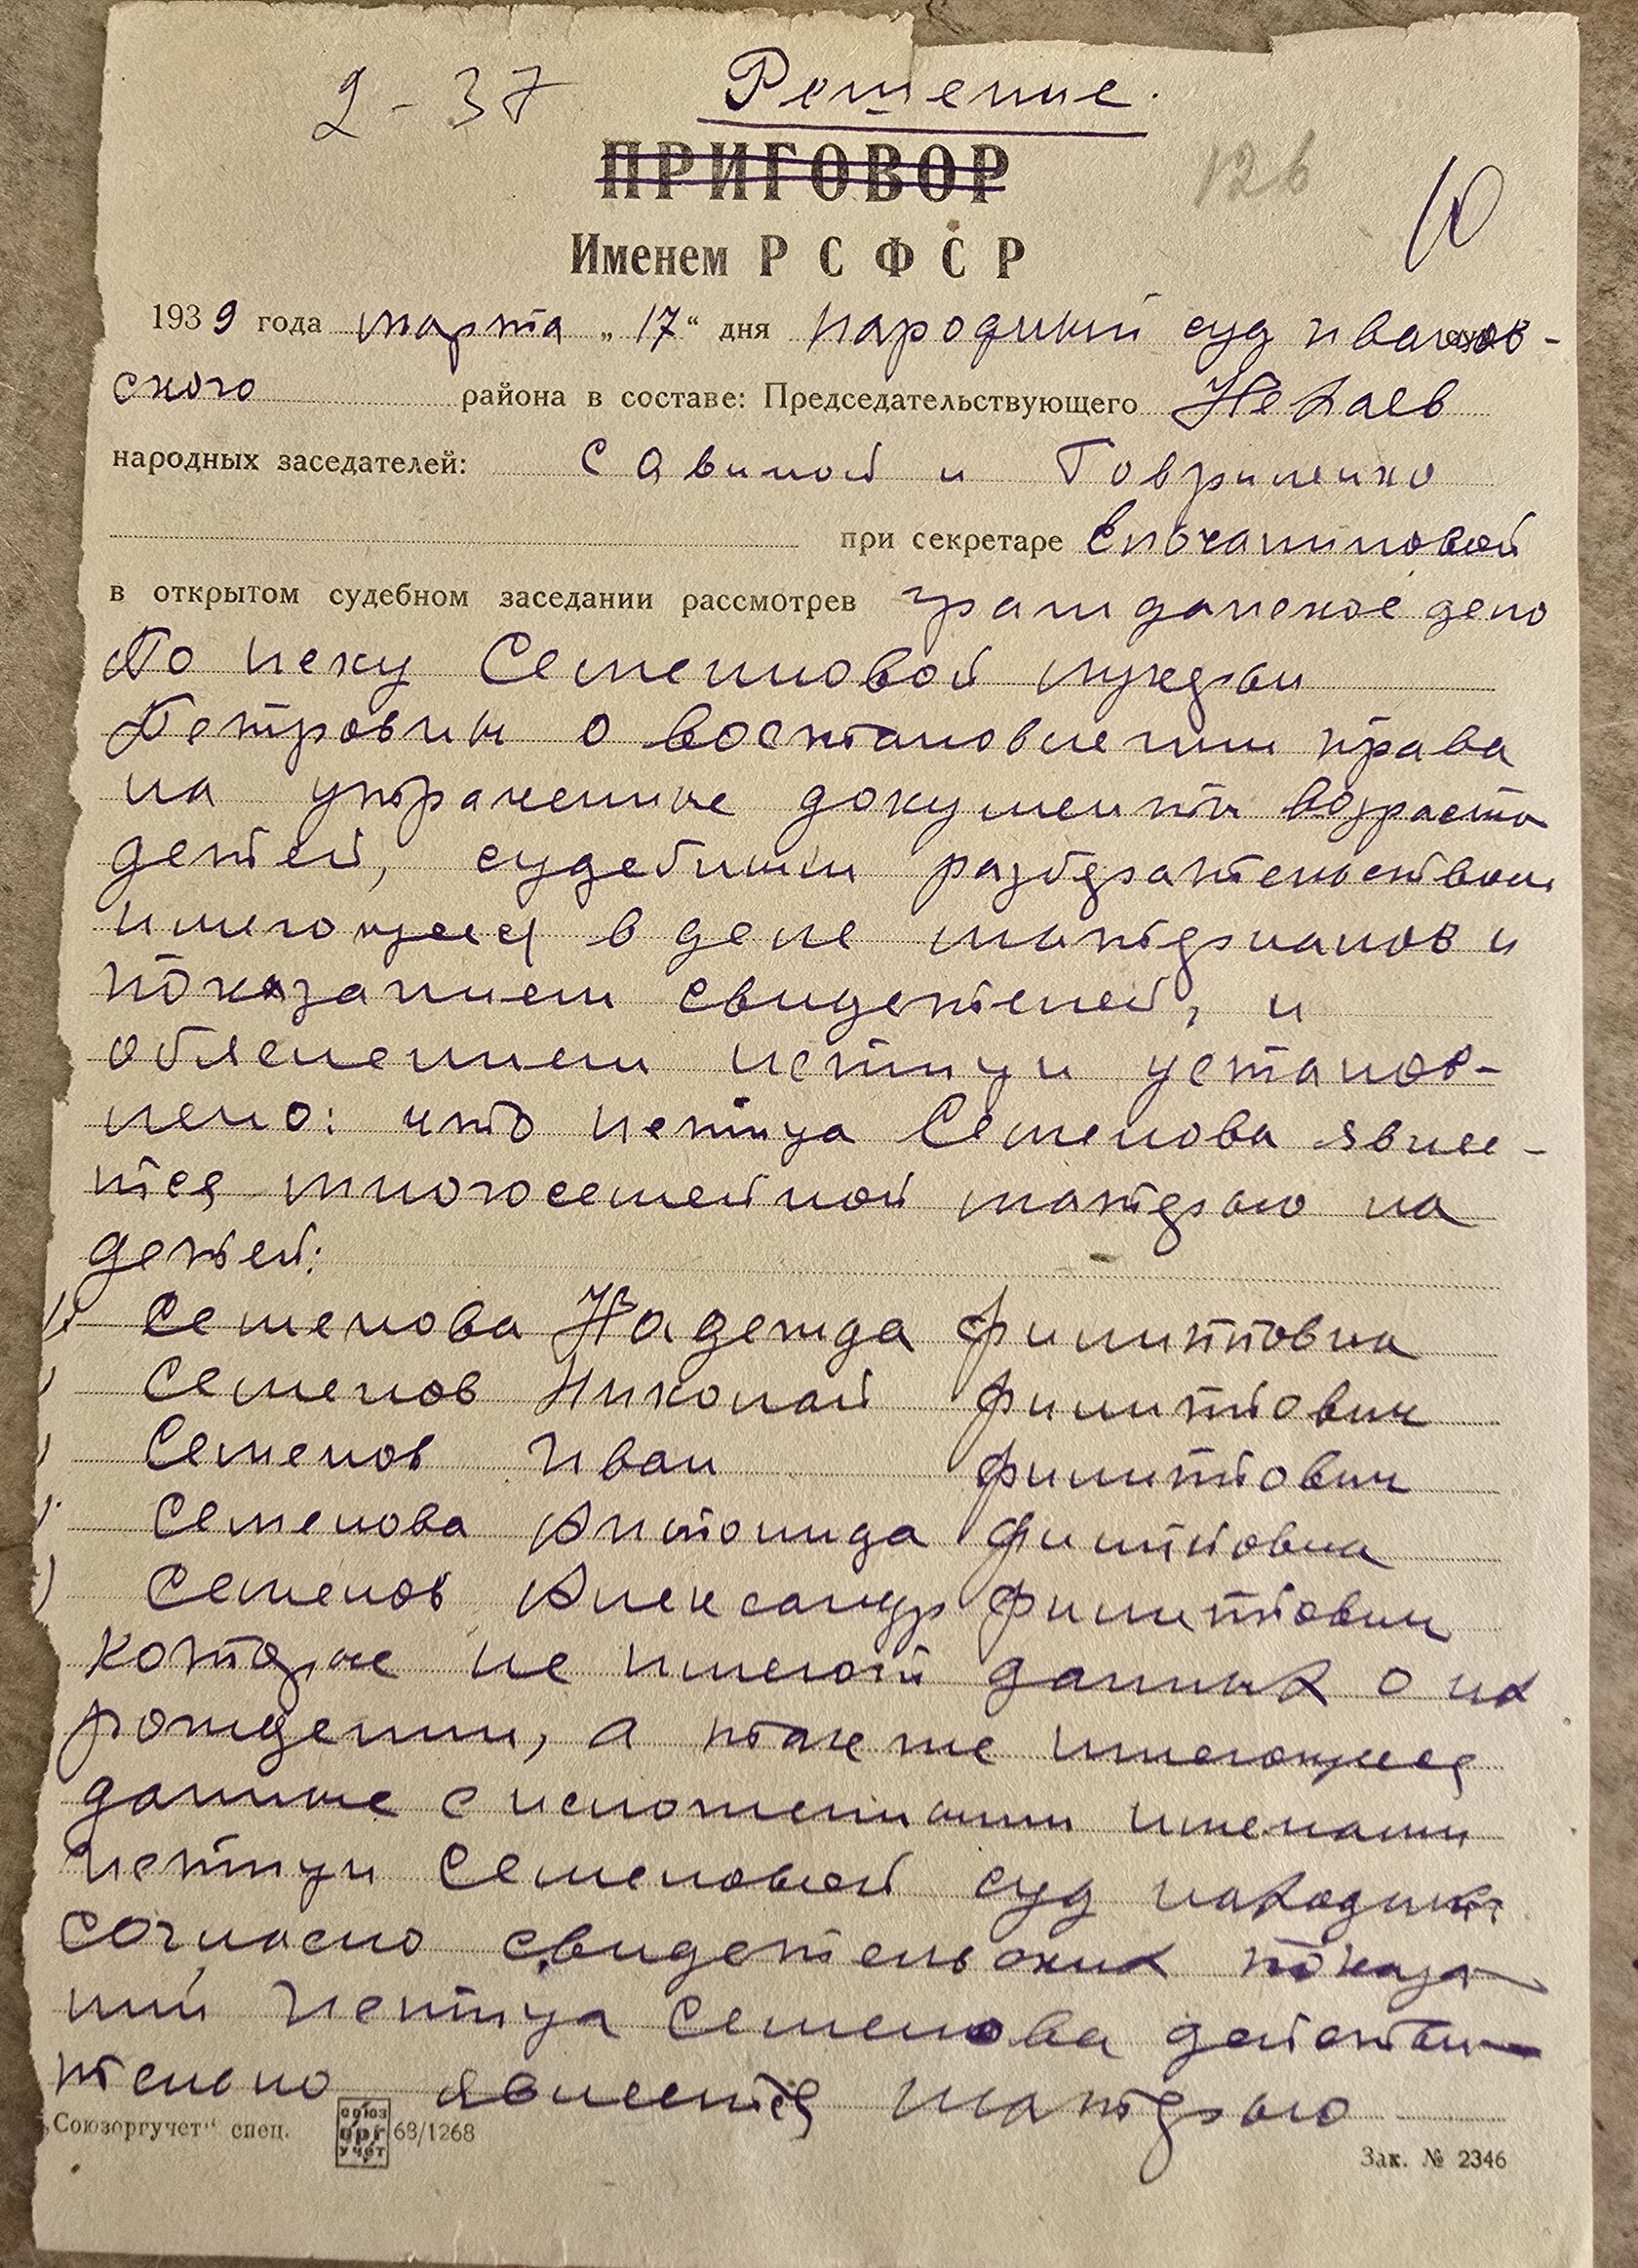 2-37 Решение.
ПРИГОВОР
126
10
Именем РСФСР
1939 года марта „17“ дня народный суд иванов-
ского района в составе: Председательствующего Нехаев
народных заседателей: Савиной и Говриленко
при секретаре
в открытом судебном заседании рассмотрев гражданское дело
По иску Семенновой
Петровны о востановлении права
на утраченные документы возроста
детей, судебным разберательством
имеющееся в деле матерналов и
показанием свидетелей, и
обяснением истицы установ-
лено: что истица Семенова явлее-
тся многосемейной матерью на
детей:
1) Семенова Надежда Филипповна
) Семенов Николай Филиппович
) Семенов Иван Филиппович
) Семенова Антонида Филипповна
) Семенов Александр Филиппович
которые не имеют данных о их
рождении, а так же имеющееся
данные с исложенными именами
истицы Семеновой суд находит:
согласно свидетельских показа-
ний истица Семенова действи-
тельно явлеется матерью
„Союзоргучет“ спец.
СОЮЗ
ОРГ
УЧЕТ
68/1268
Зак. № 2346